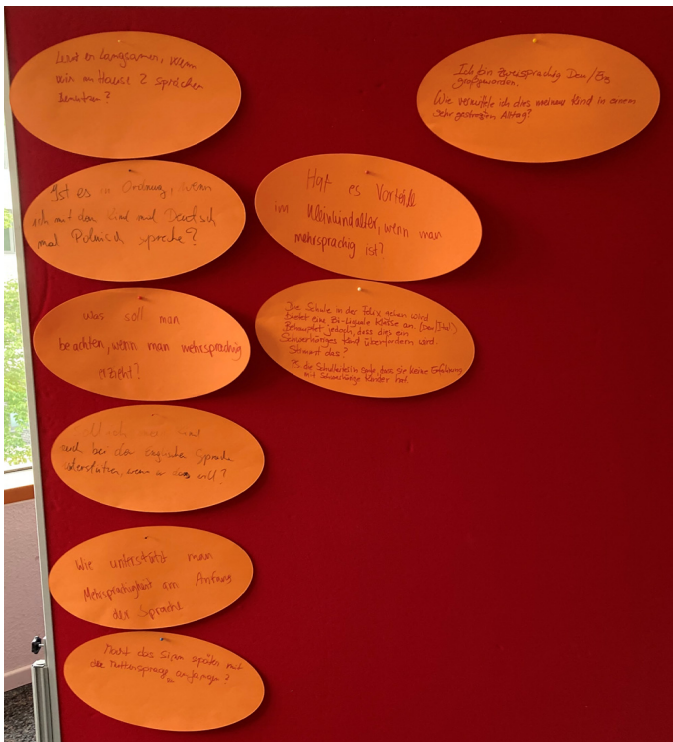 Lernt er langsamer, wenn
wir zu Hause 2 sprachen
benutzen?
Ist es in Ordnung, wenn
ich mit dem Kind mal Deutsch
mal Polnisch spreche?
Was soll man
beachten, wenn man mehrsprachig
erzieht?
auch bei der englischen Sprache
unterstützen, wenn er das will?
Wie unterstützt man
Mehrsprachigkeit am Anfang
der Sprache
Macht das Sinn später mit
der Muttersprache anfangen?
Hat es Vorteile
im Kleinkindalter, wenn man
mehrsprachig ist?
Die Schule in der Felix gehen wird
bietet eine Bi-Linguale Klasse an. (Deu/Ital)
Behauptet jedoch, dass dies ein
Schwerhöriges Kind überfordern wird.
Stimmt das?
PS die Schulleiterin sagte, dass sie keine Erfahrung
mit Schwerhörige Kinder hat.
Ich bin zweisprachig Deu/Eng
großgeworden.
Wie vermittle ich dies meinem Kind in einem
sehr gestressten Alltag?